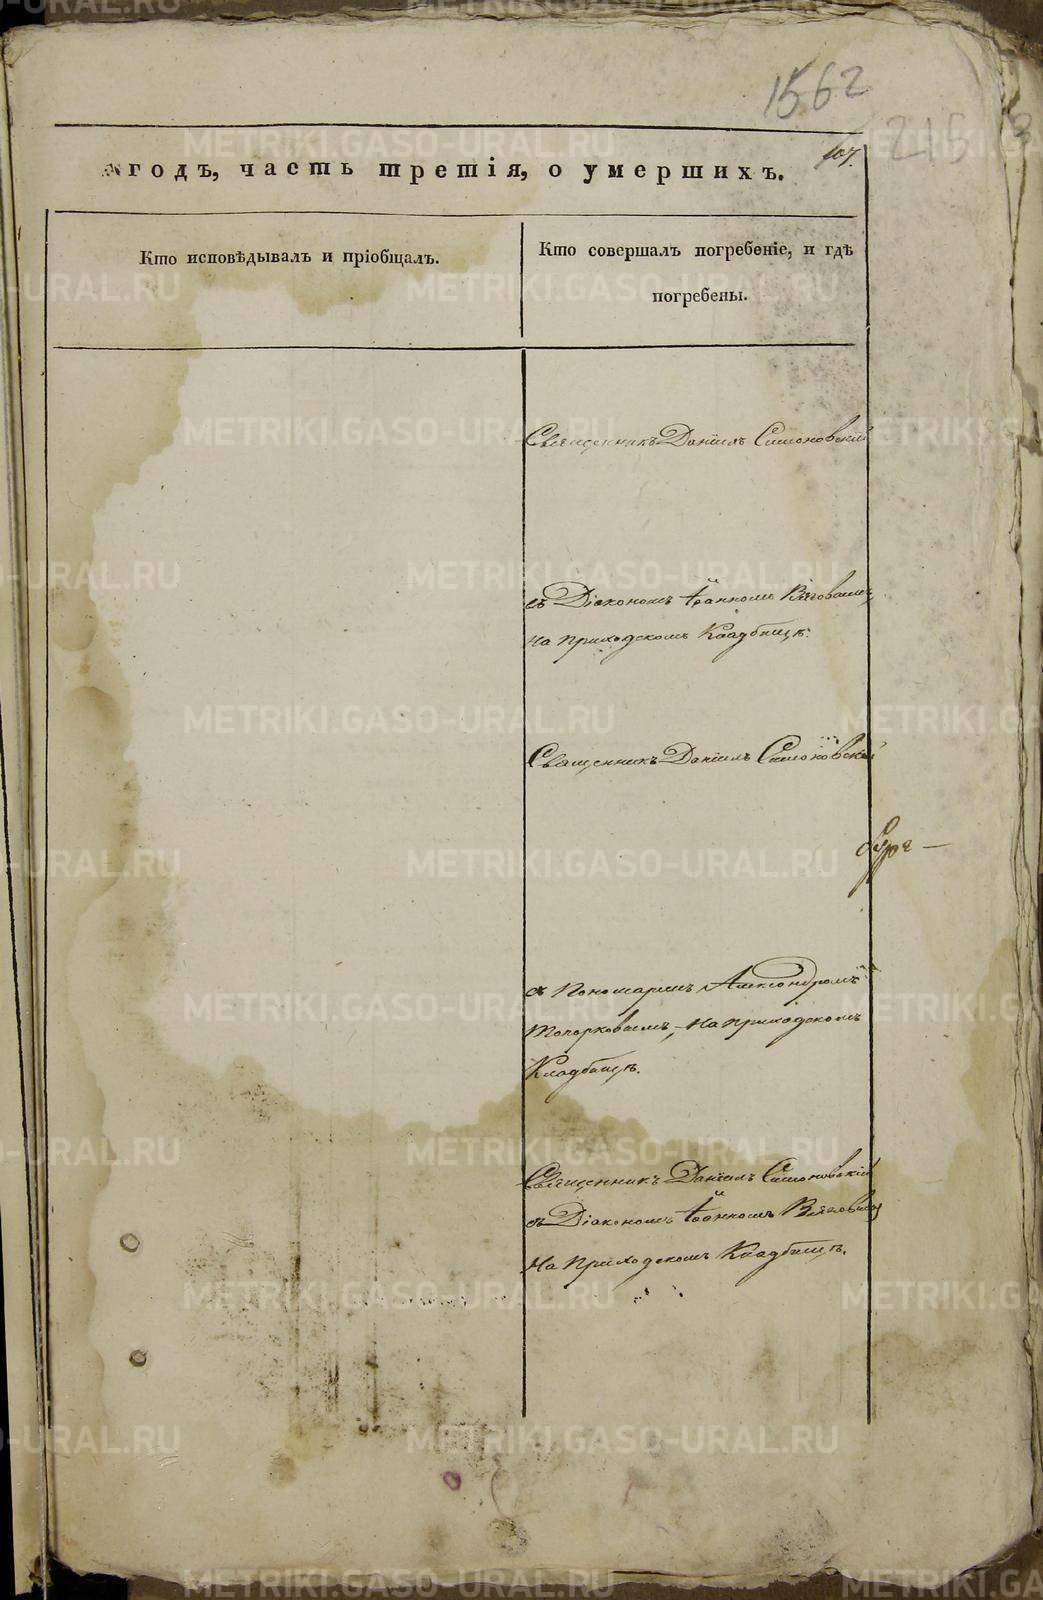 1562
215
3
107.
годъ, часть третія, о умершихъ.
Кто исповѣдывалъ и пріобщалъ.
Кто совершалъ погребеніе, и гдѣ
погребены.
Священникъ Даніилъ Симоновскій
съ Діакономъ Іоанномъ
на приходскомъ Кладбищѣ.
Священникъ Даніилъ Симоновскій
съ Пономаремъ Александромъ
Топорковымъ, на приходскомъ
Кладбищѣ.
Священникъ Даніилъ Симоновскій
съ Діакономъ Іоанномъ
на приходскомъ Кладбищѣ.
METRIKI.GASO-URAL.RU